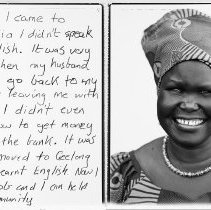 I came to
ia I didn't speak
lish. It was very
hen my husband
go back to my
leaving me with
I didn't even
ow to get money
the bank. It was
moved to Geelong
earnt English. Now I
job and I can help
munity